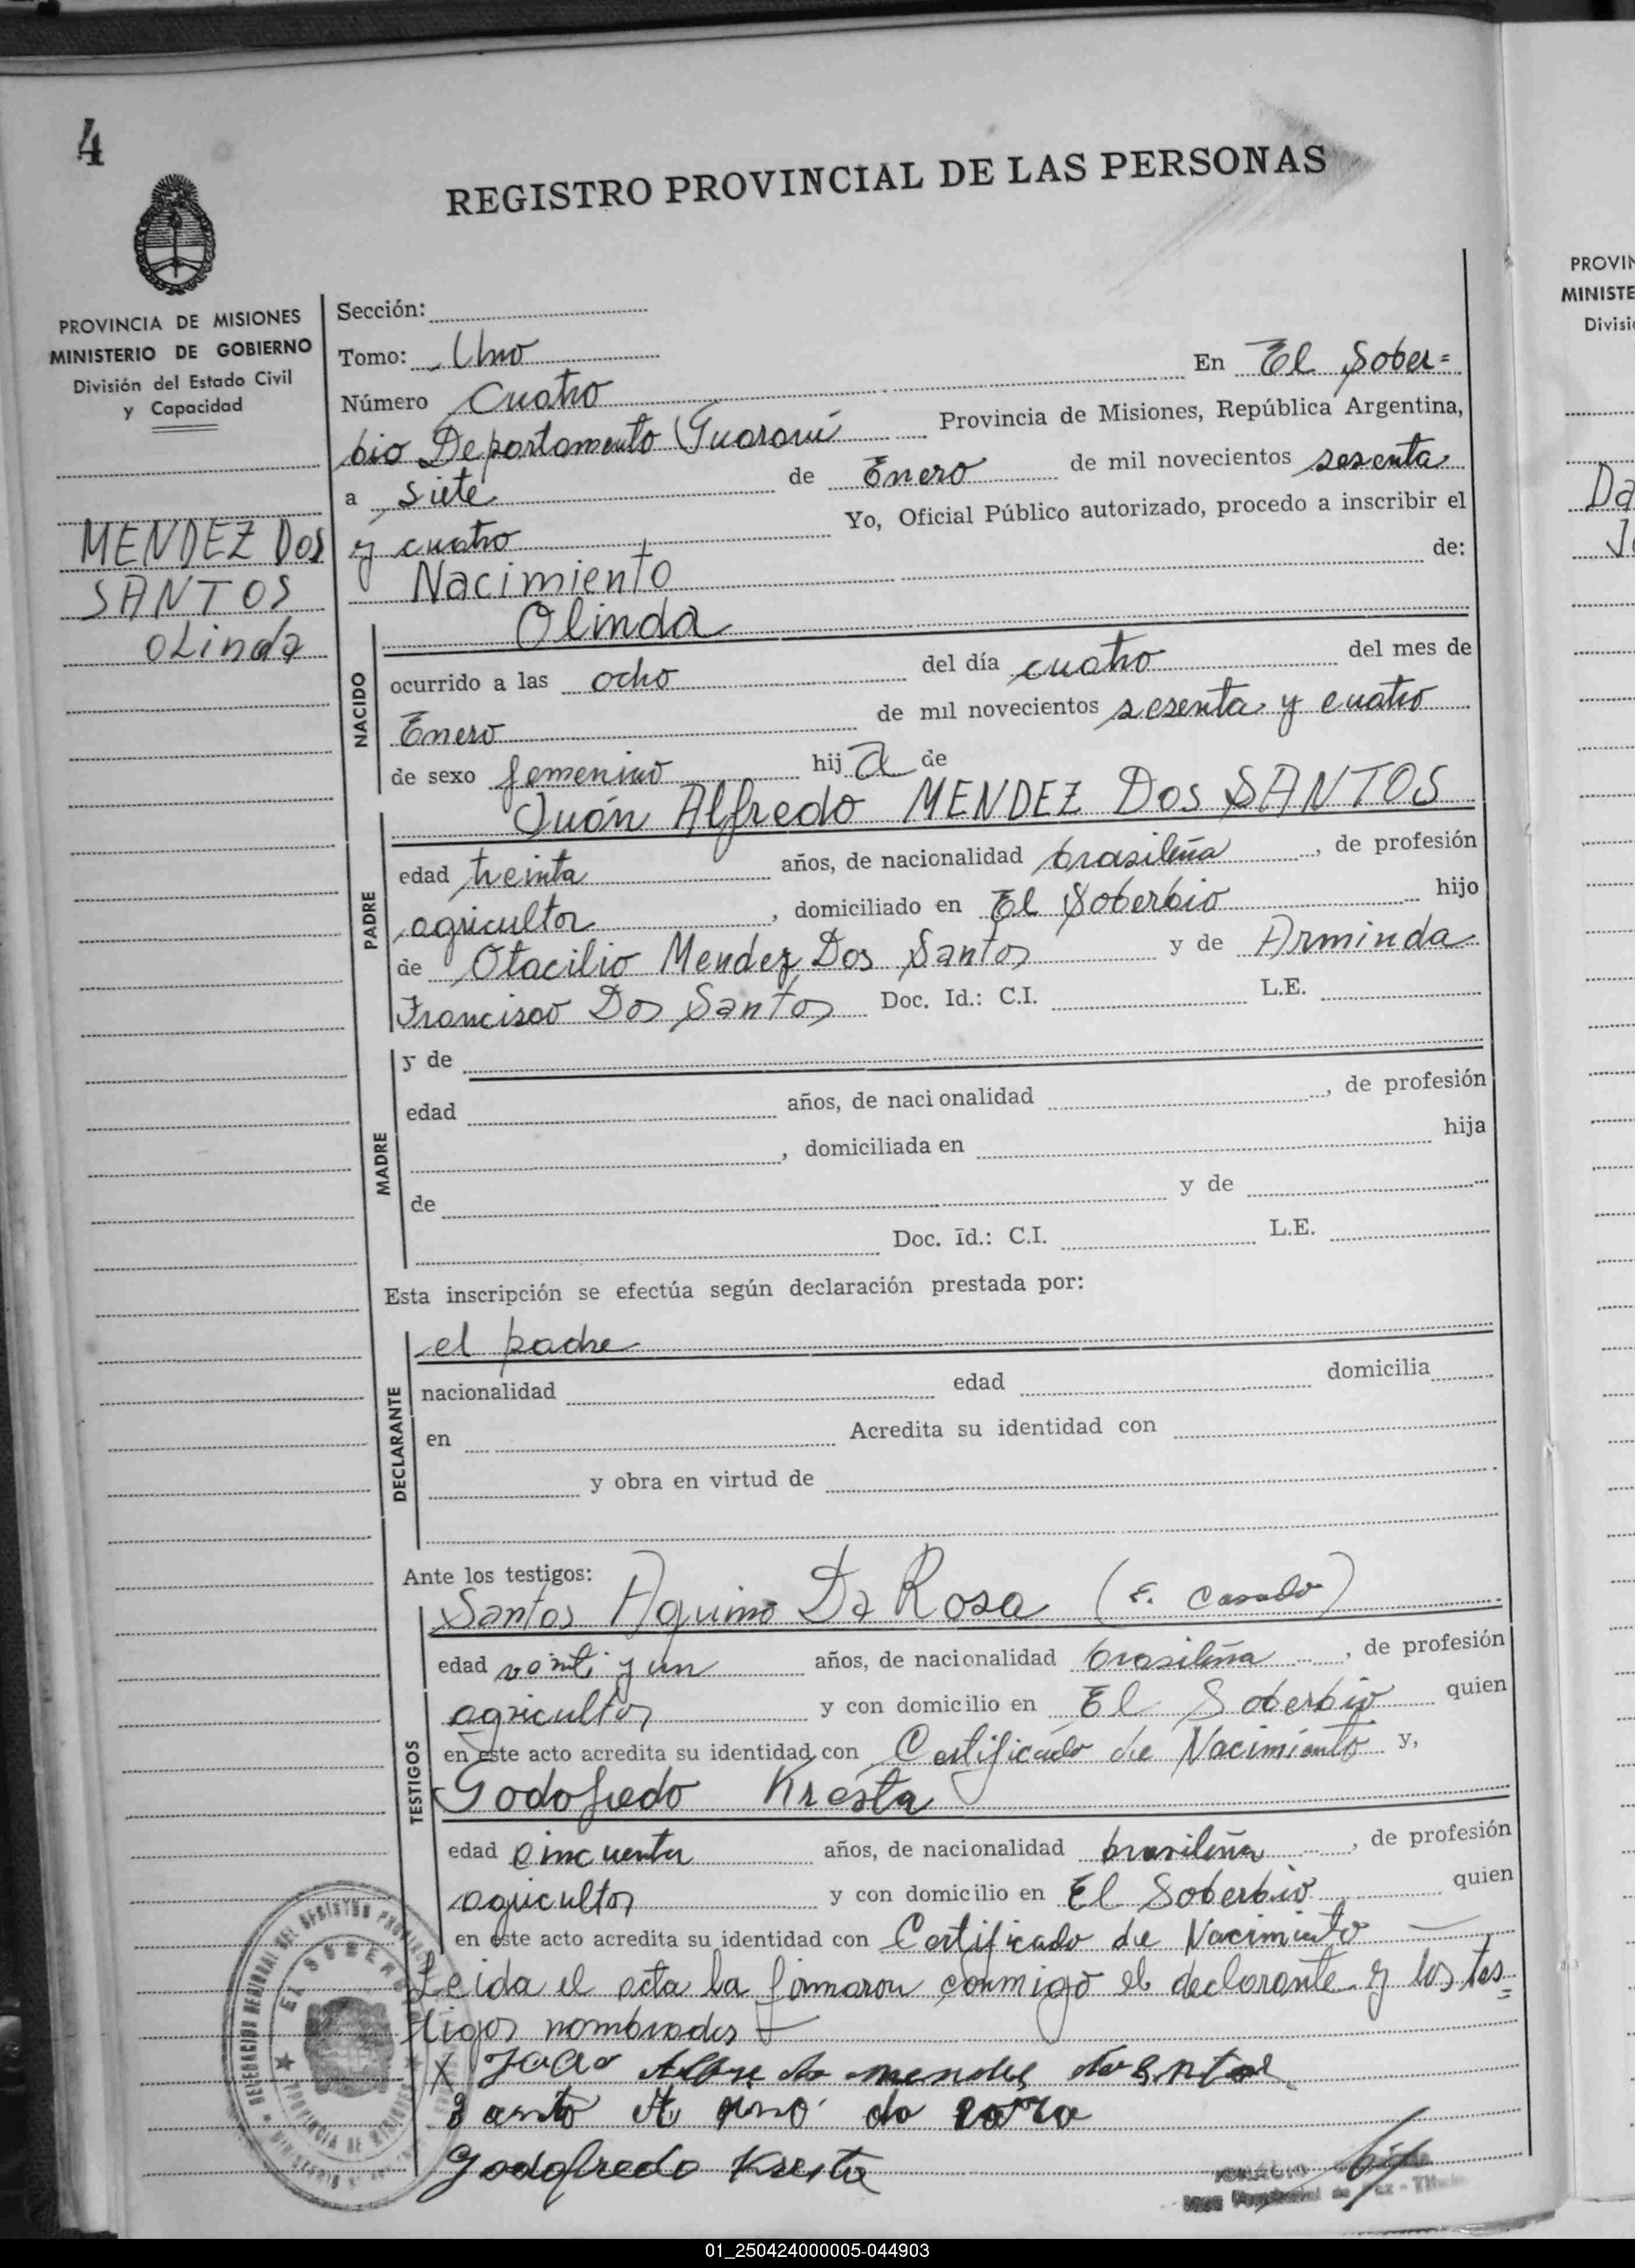 4
REGISTRO PROVINCIAL DE LAS PERSONAS
PROVINCIA DE MISIONES
MINISTERIO DE GOBIERNO
División del Estado Civil
y Capacidad
MENDEZ Dos
SANTOS
OLinda
Sección:
Tomo: Uno
Número Cuatro En El Sober=
bio Departamento Guaraní Provincia de Misiones, República Argentina,
a siete de Enero de mil novecientos sesenta
y cuatro Yo, Oficial Público autorizado, procedo a inscribir el
Nacimiento de:
Olinda
NACIDO
ocurrido a las ocho del día cuatro del mes de
Enero de mil novecientos sesenta y cuatro
de sexo femenino hija de
Juán Alfredo MENDEZ Dos SANTOS
PADRE
edad treinta años, de nacionalidad brasileña, de profesión
agricultor, domiciliado en El Soberbio hijo
de Otacilio Mendez Dos Santos y de Arminda
Francisco Dos Santos Doc. Id.: C.I. L.E.
MADRE
y de
edad años, de nacionalidad , de profesión
, domiciliada en hija
de y de
Doc. Id.: C.I. L.E.
Esta inscripción se efectúa según declaración prestada por:
DECLARANTE
el padre
nacionalidad edad domicilia
en Acredita su identidad con
y obra en virtud de
Ante los testigos:
TESTIGOS
Santos Aquino Da Rosa (E. Casado)
edad veinti y un años, de nacionalidad brasileña, de profesión
agricultor y con domicilio en El Soberbio quien
en este acto acredita su identidad con Certificado de Nacimiento y,
Godofredo Kresta
edad cincuenta años, de nacionalidad brasileña, de profesión
agricultor y con domicilio en El Soberbio quien
en este acto acredita su identidad con Certificado de Nacimiento
Leida el acta la firmaron conmigo el declarante y los tes=
tigos nombrados
X
Godofredo Kresta
EL SOBERBIO
PROVINCIA DE MISIONES
PROVIN
MINISTE
Divisi
Da
01_250424000005-044903